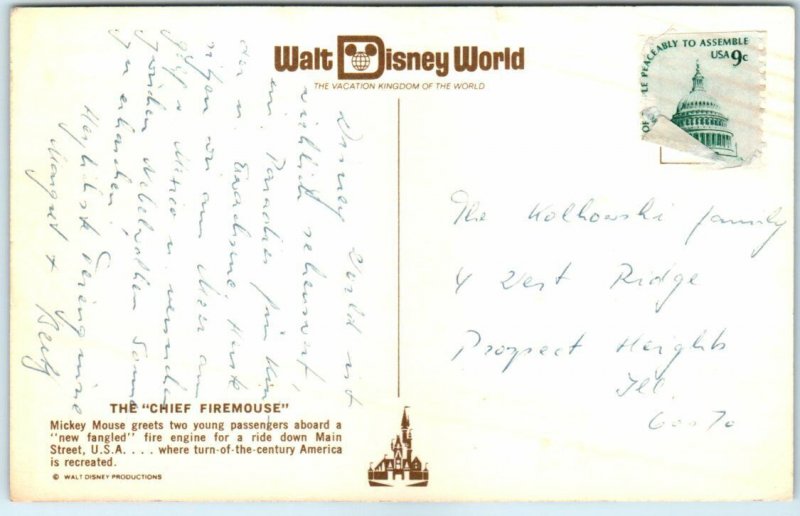 Walt Disney World
THE VACATION KINGDOM OF THE WORLD
PEACEABLY TO ASSEMBLE
USA 9c
Disney World ist
wirklich sehenswert,
ein Paradies für Kin-
der u. Erwachsene. Heute
sitzen wir am Meer am
Golf v. Mexico u. versuchen
zwischen Nebelwolken Sonne
zu erhaschen,
Herzlichst
Margret +
The Kolkowski family
4 West Ridge
Prospect Heights
Ill.
60070
THE "CHIEF FIREMOUSE"
Mickey Mouse greets two young passengers aboard a
"new fangled" fire engine for a ride down Main
Street, U.S.A. . . . . where turn-of-the-century America
is recreated.
© WALT DISNEY PRODUCTIONS